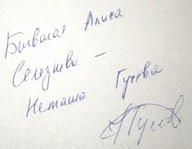 Бывшая Алиса
Селезнева —
Наташа Гусева